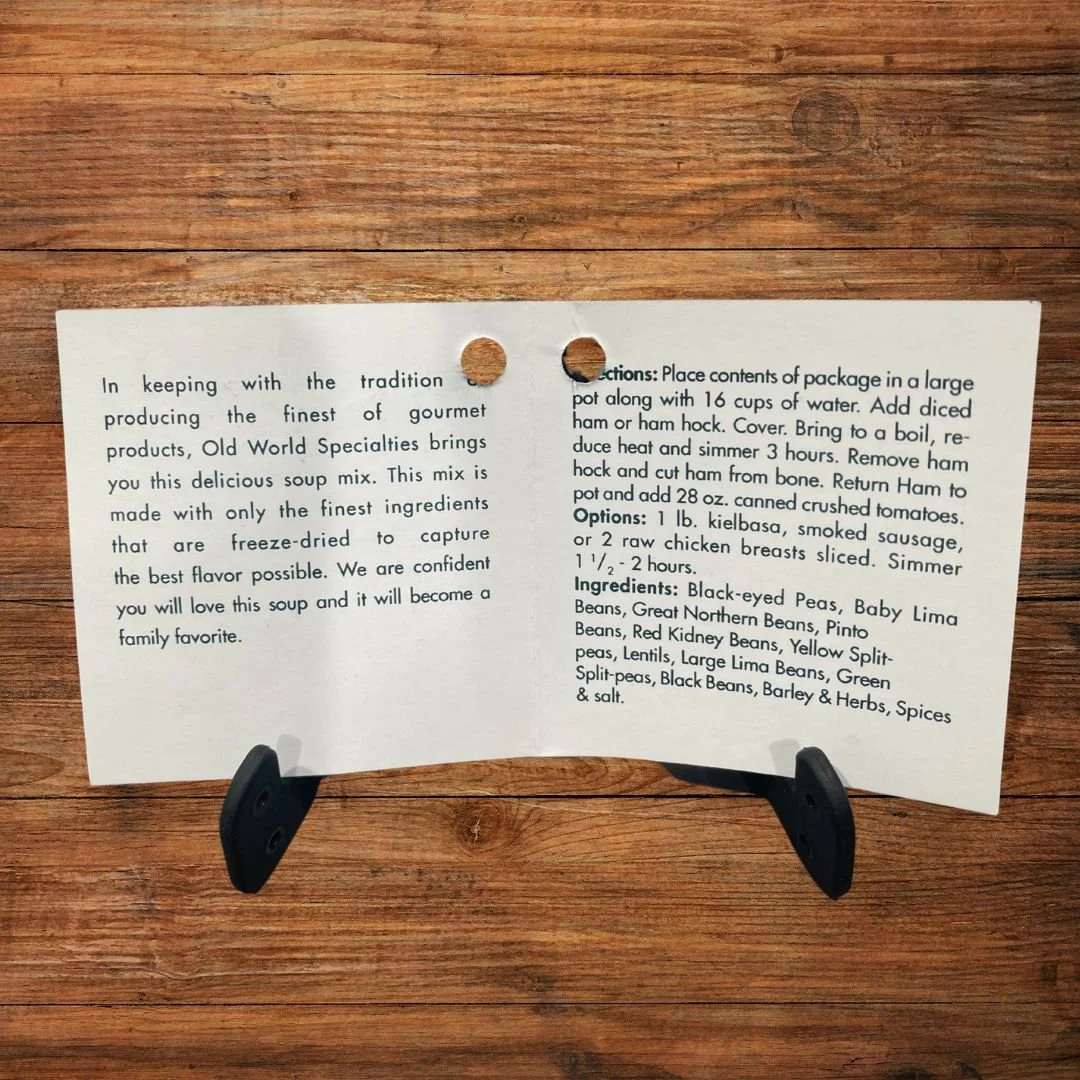 In keeping with the tradition
producing the finest of gourmet
products, Old World Specialties brings
you this delicious soup mix. This mix is
made with only the finest ingredients
that are freeze-dried to capture
the best flavor possible. We are confident
you will love this soup and it will become a
family favorite.
ections: Place contents of package in a large
pot along with 16 cups of water. Add diced
ham or ham hock. Cover. Bring to a boil, re-
duce heat and simmer 3 hours. Remove ham
hock and cut ham from bone. Return Ham to
pot and add 28 oz. canned crushed tomatoes.
Options: 1 lb. kielbasa, smoked sausage,
or 2 raw chicken breasts sliced. Simmer
1 1/2 - 2 hours.
Ingredients: Black-eyed Peas, Baby Lima
Beans, Great Northern Beans, Pinto
Beans, Red Kidney Beans, Yellow Split-
peas, Lentils, Large Lima Beans, Green
Split-peas, Black Beans, Barley & Herbs, Spices
& salt.